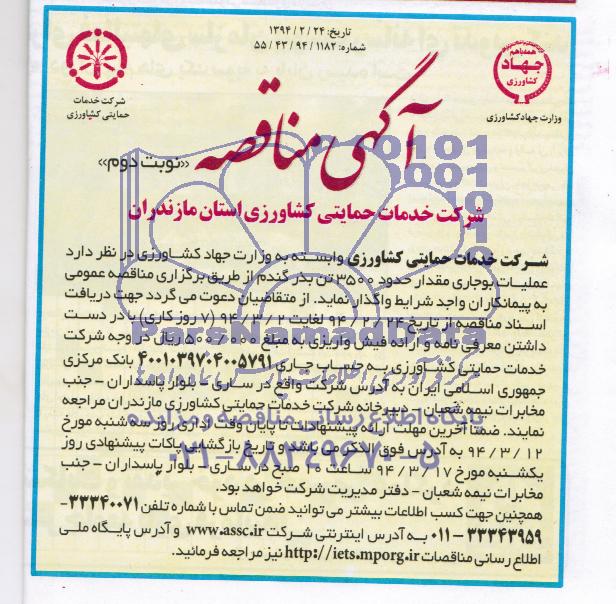 تاریخ: ۱۳۹۴ / ۲ / ۲۴
شماره: ۵۵ / ۴۳ / ۹۴ / ۱۱۸۲
همه با هم
جهاد
کشاورزی
وزارت جهاد کشاورزی
شرکت خدمات
حمایتی کشاورزی
آگهی مناقصه
«نوبت دوم»
شرکت خدمات حمایتی کشاورزی استان مازندران
شرکت خدمات حمایتی کشاورزی وابسته به وزارت جهاد کشاورزی در نظر دارد
عملیات بوجاری مقدار حدود ۳۵۰۰ تن بذر گندم از طریق برگزاری مناقصه عمومی
به پیمانکاران واجد شرایط واگذار نماید. از متقاضیان دعوت می گردد جهت دریافت
اسناد مناقصه از تاریخ ۹۴ / ۲ / ۲۴ لغایت ۹۴ / ۳ / ۲ (۷ روز کاری) با در دست
داشتن معرفی نامه و ارائه فیش واریزی به مبلغ ۵۰۰/۰۰۰ ریال در وجه شرکت
خدمات حمایتی کشاورزی به حساب جاری ۴۰۰۱۰۳۹۷۰۴۰۰۵۷۹۱ بانک مرکزی
جمهوری اسلامی ایران به آدرس شرکت واقع در ساری - بلوار پاسداران - جنب
مخابرات نیمه شعبان - دبیرخانه شرکت خدمات حمایتی کشاورزی مازندران مراجعه
نمایند. ضمنا آخرین مهلت ارائه پیشنهادات تا پایان وقت اداری روز سه شنبه مورخ
۹۴ / ۳ / ۱۲ به آدرس فوق الذکر می باشد. و تاریخ بازگشایی پاکات پیشنهادی روز
یکشنبه مورخ ۹۴ / ۳ / ۱۷ ساعت صبح در ساری - بلوار پاسداران - جنب
مخابرات نیمه شعبان - دفتر مدیریت شرکت خواهد بود.
همچنین جهت کسب اطلاعات بیشتر می توانید ضمن تماس با شماره تلفن ۳۳۳۴۰۰۷۱-
۳۳۳۴۳۹۵۹-۰۱۱ به آدرس اینترنتی شرکت www.assc.ir و آدرس پایگاه ملی
اطلاع رسانی مناقصات http://iets.mporg.ir نیز مراجعه فرمائید.
ParsNamadData
پایگاه اطلاع رسانی مناقصه و مزایده
۰۲۱-۸۸۳۴۹۶۷۰-۵